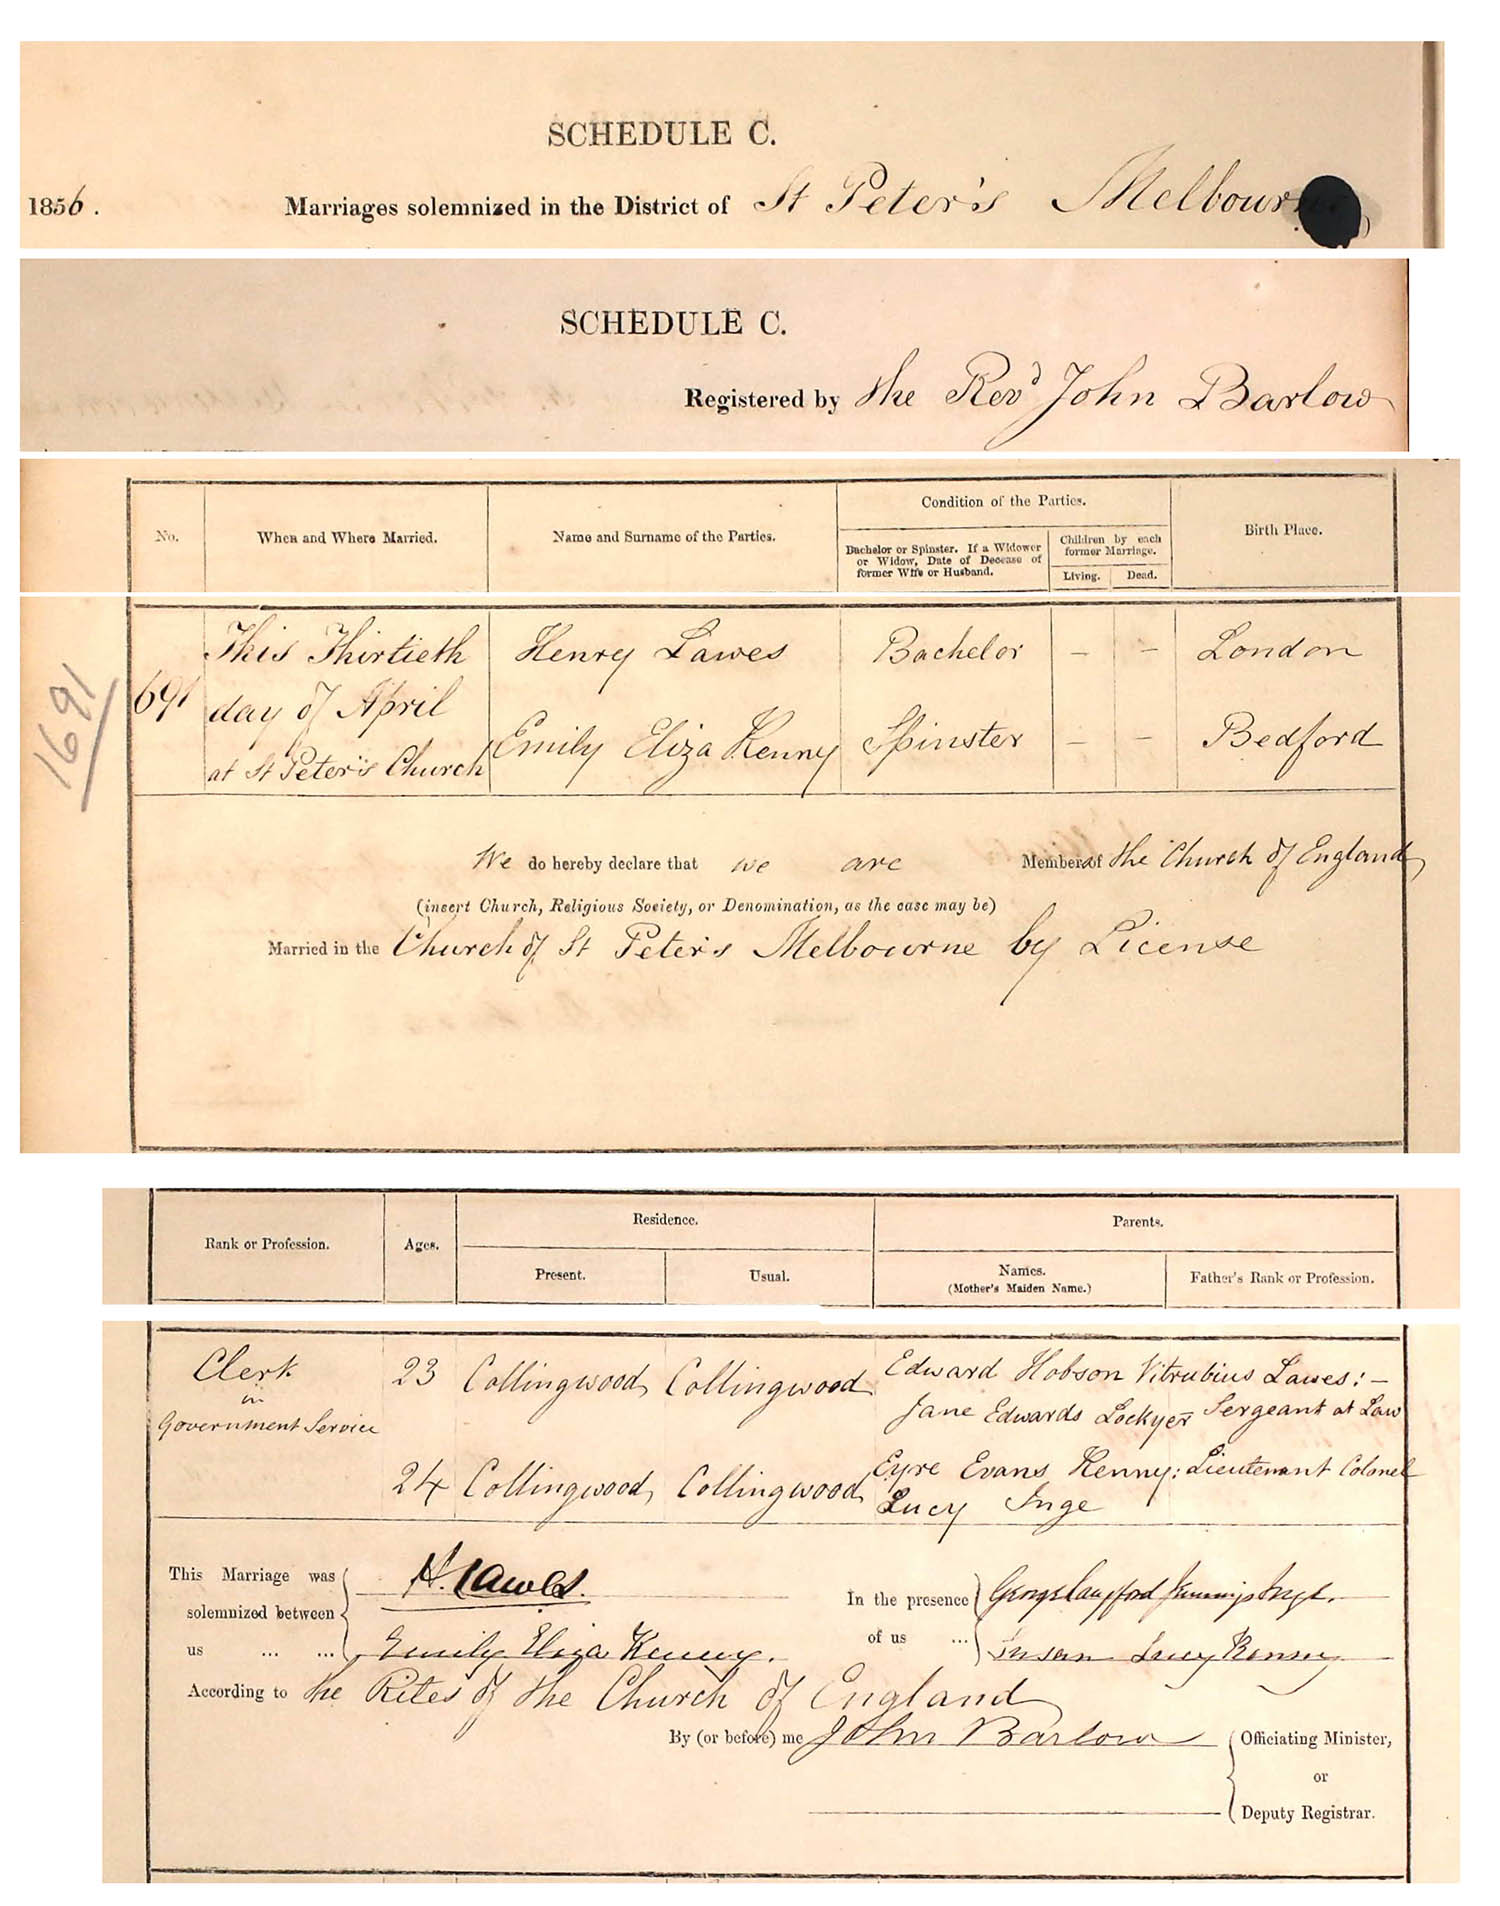 SCHEDULE C.
1856. Marriages solemnized in the District of St Peter's Melbourne
SCHEDULE C.
Registered by the Revd John Barlow
No. When and Where Married. Name and Surname of the Parties. Condition of the Parties. Birth Place.
Bachelor or Spinster. If a Widower or Widow, Date of Decease of former Wife or Husband. Children by each former Marriage.
Living. Dead.
1691
691 This Thirtieth Henry Lawes Bachelor - - London
day of April
at St Peter's Church Emily Eliza Kenny Spinster - - Bedford
We do hereby declare that we are Members of the Church of England
(insert Church, Religious Society, or Denomination, as the case may be)
Married in the Church of St Peter's Melbourne by License
Rank or Profession. Ages. Residence. Parents.
Present. Usual. Names. (Mother's Maiden Name.) Father's Rank or Profession.
Clerk 23 Collingwood Collingwood Edward Hobson Vitrubius Lawes: -
in
Government Service Jane Edwards Lockyer Sergeant at Law
24 Collingwood Collingwood Eyre Evans Kenny: Lieutenant Colonel
Lucy Inge
This Marriage was H. Lawes. In the presence George Langford Jennings Inge.
solemnized between
us ... ... Emily Eliza Kenny. of us ... Susan Lucy
According to the Rites of the Church of England
By (or before) me John Barlow Officiating Minister,
or
Deputy Registrar.